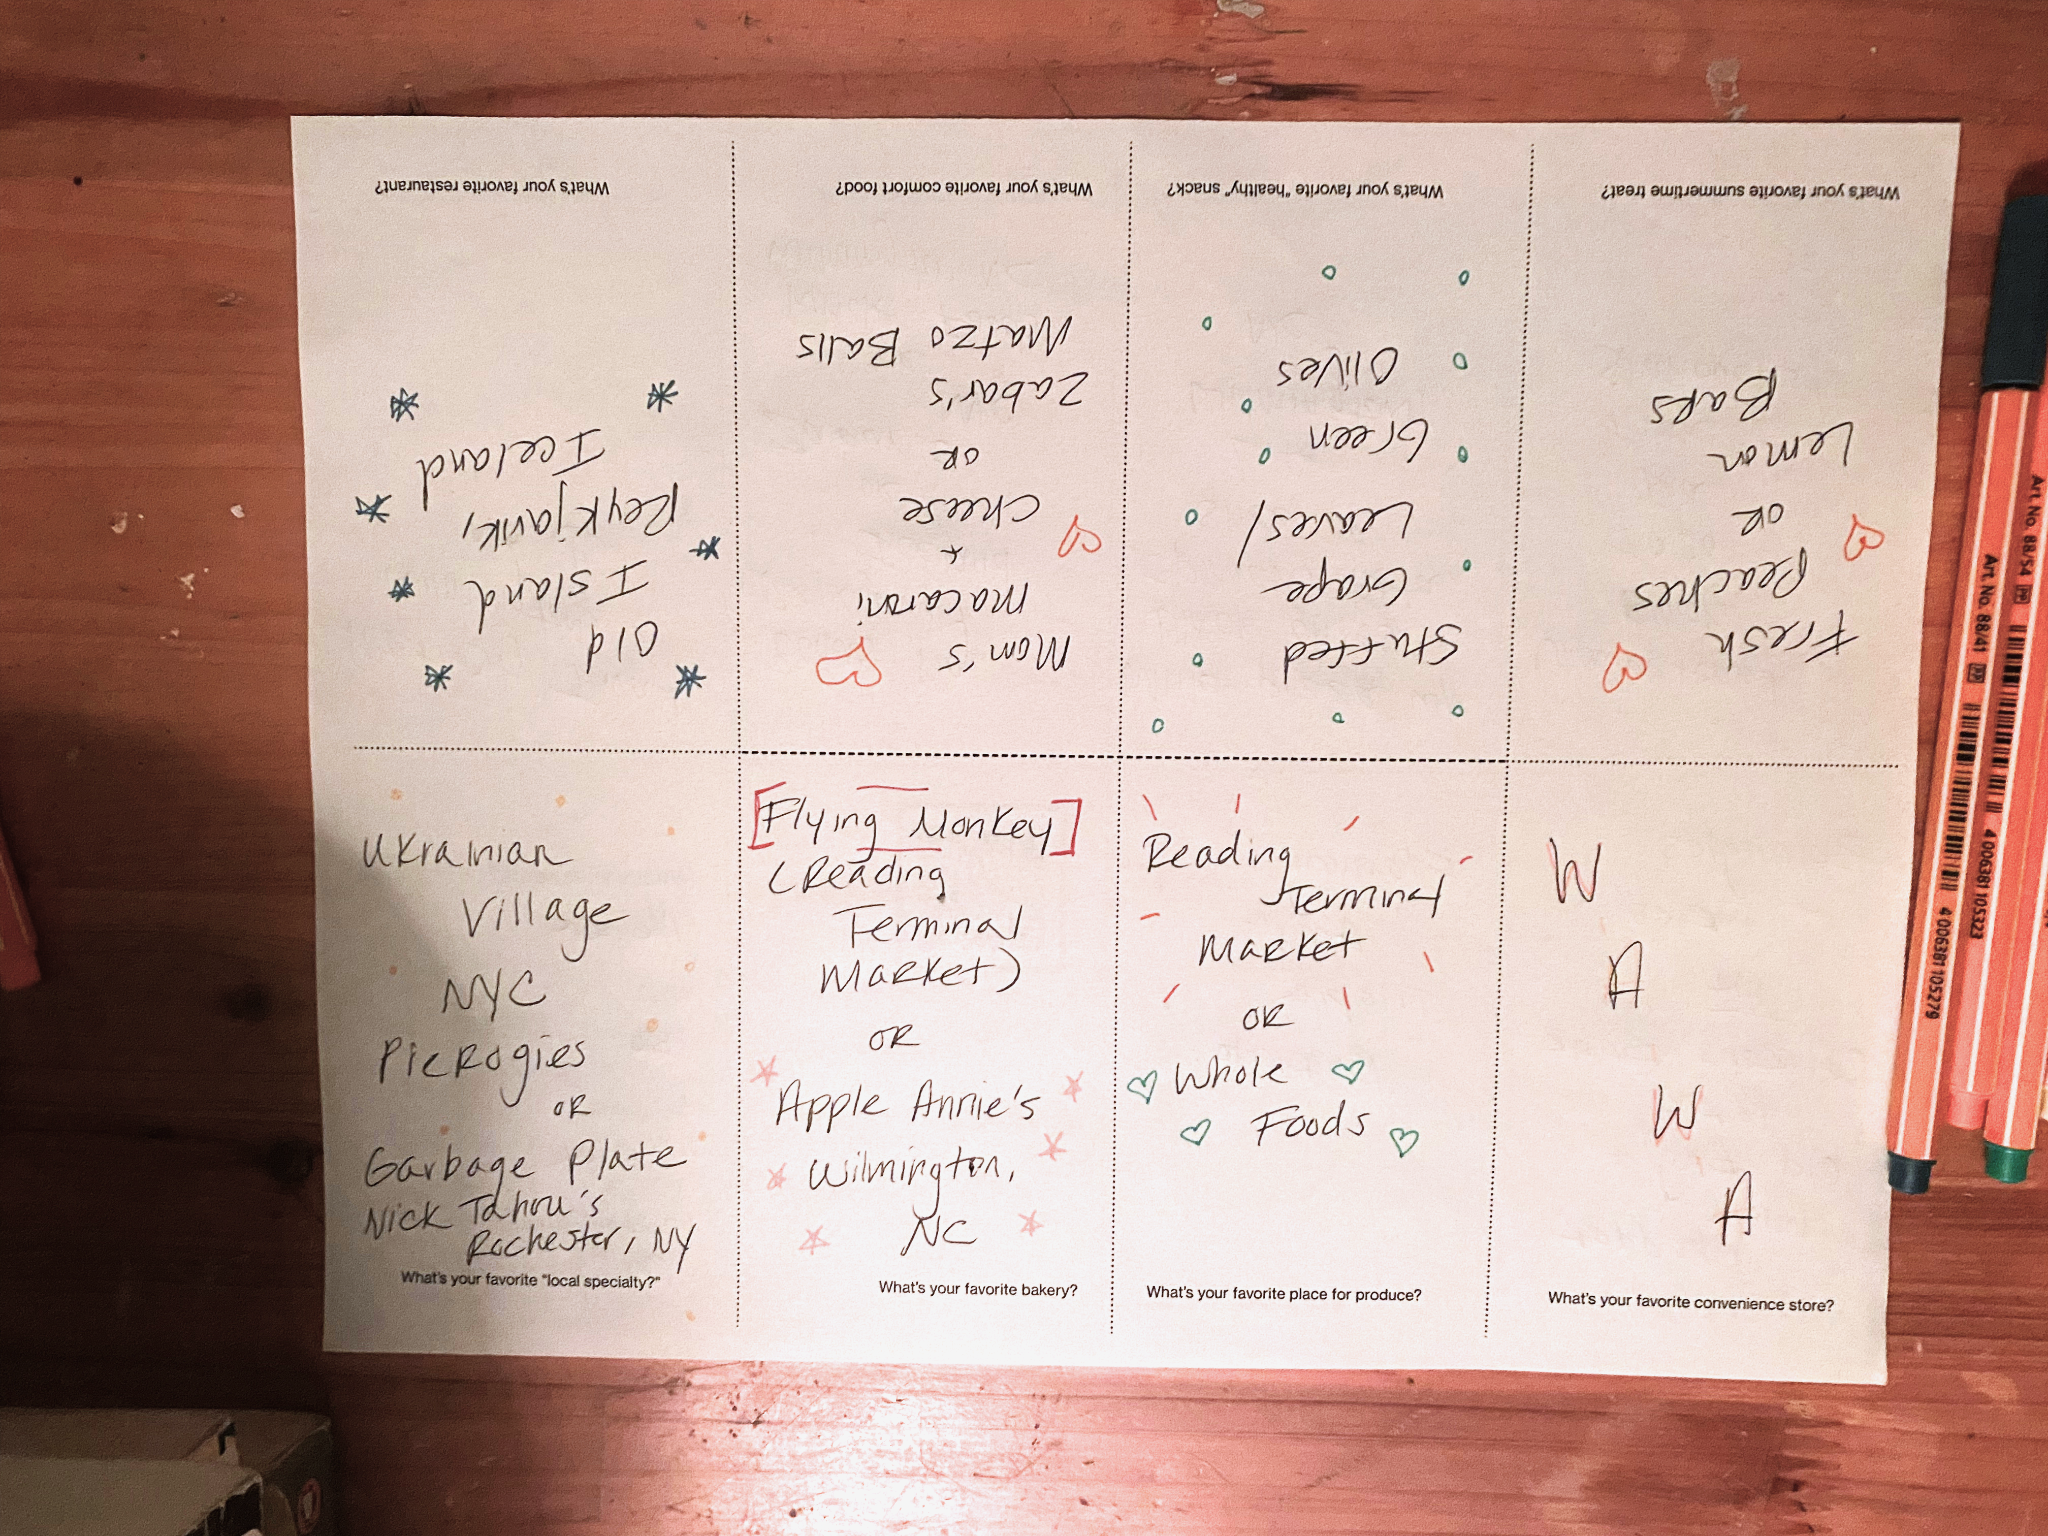 What's your favorite restaurant?
Old
Island
Reykjavik,
Iceland
What's your favorite comfort food?
Mom's
macaroni
+
cheese
OR
Zabar's
Matzo Balls
What's your favorite "healthy" snack?
Stuffed
Grape
Leaves/
Green
Olives
What's your favorite summertime treat?
Fresh
Peaches
OR
Lemon
Bars
Ukrainian
Village
NYC
Pierogies
OR
Garbage Plate
Nick Tahou's
Rochester, NY
What's your favorite "local specialty?"
[Flying Monkey]
(Reading
Terminal
Market)
OR
Apple Annie's
Wilmington,
NC
What's your favorite bakery?
Reading
Terminal
Market
OR
Whole
Foods
What's your favorite place for produce?
W
A
W
A
What's your favorite convenience store?
Art. No. 88/54
4 006381 105323
Art. No. 88/41
4 006381 105279